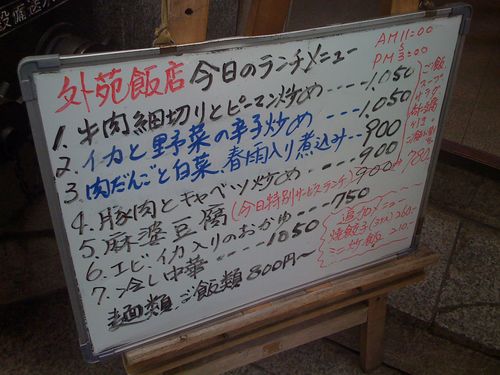 外苑飯店 今日のランチメニュー
AM11=00
PM3=00
1. 牛肉細切りとピーマン炒め ---- 1,050
2. イカと野菜の辛子炒め ---- 1,050
3. 肉だんごと白菜、春雨入り煮込み -- 900
4. 豚肉とキャベツ炒め ---- 900
5. 麻婆豆腐 (今日特別サービスランチ) 900 780
6. エビ・イカ入りのおかゆ --- 750
7. 冷し中華 ---- 1050
麺類、ご飯類 800円〜
ご飯
スープ
サラダ
追加メニュー
焼餃子 260-
ミニ炒飯 210-